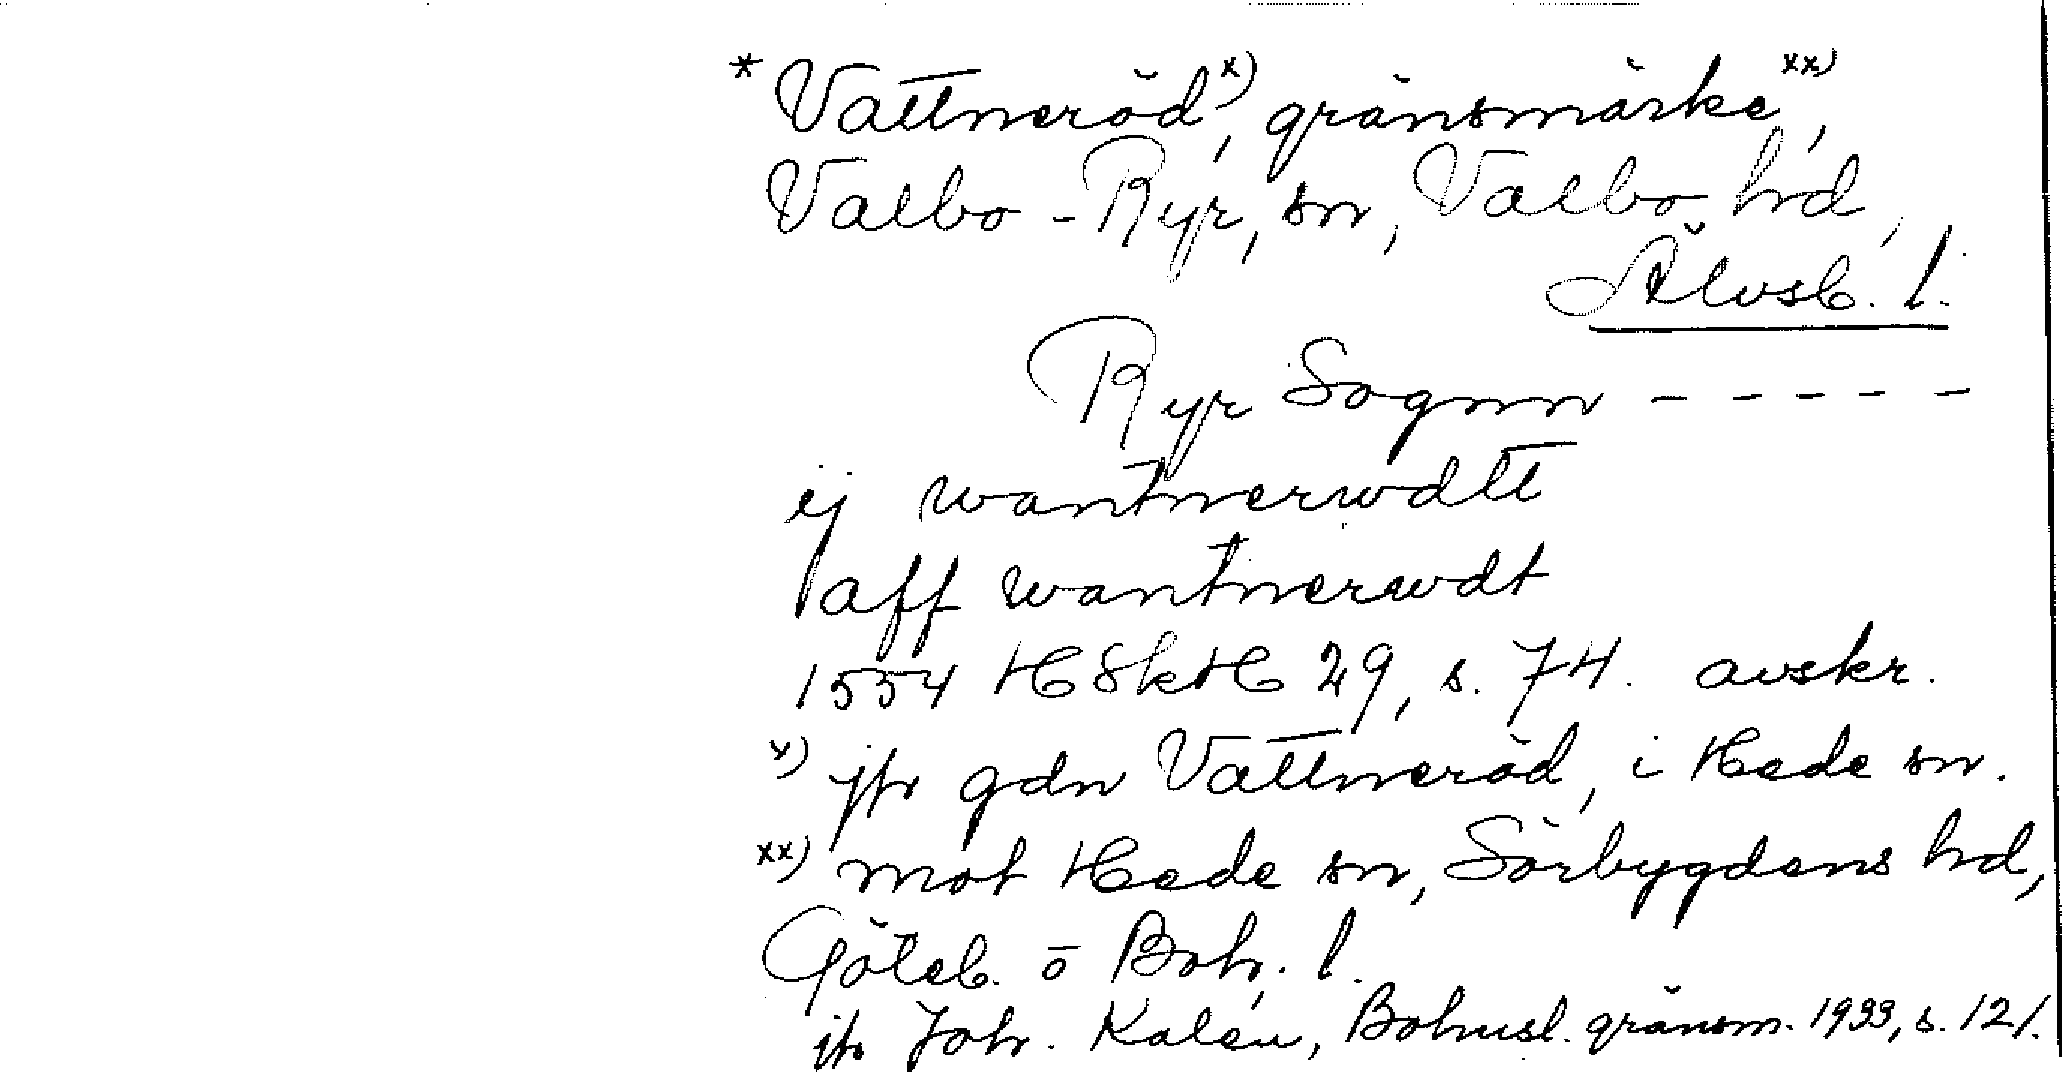 * Vattneröd x), gränsmärke xx),
Valbo-Ryr, sn, Valbo hd,
Älvsb. l.
Ryr Sognn - - - - -
ij wantnerwdtt
aff wantnerwdt
1554 HSkH 29, s. 74. avskr.
x) jfr gdn Vattneröd, i Hede sn.
xx) mot Hede sn, Sörbygdens hd,
Göteb. o Boh. l.
jfr Joh. Kalén, Bohusl. gränsm. 1933, s. 121.